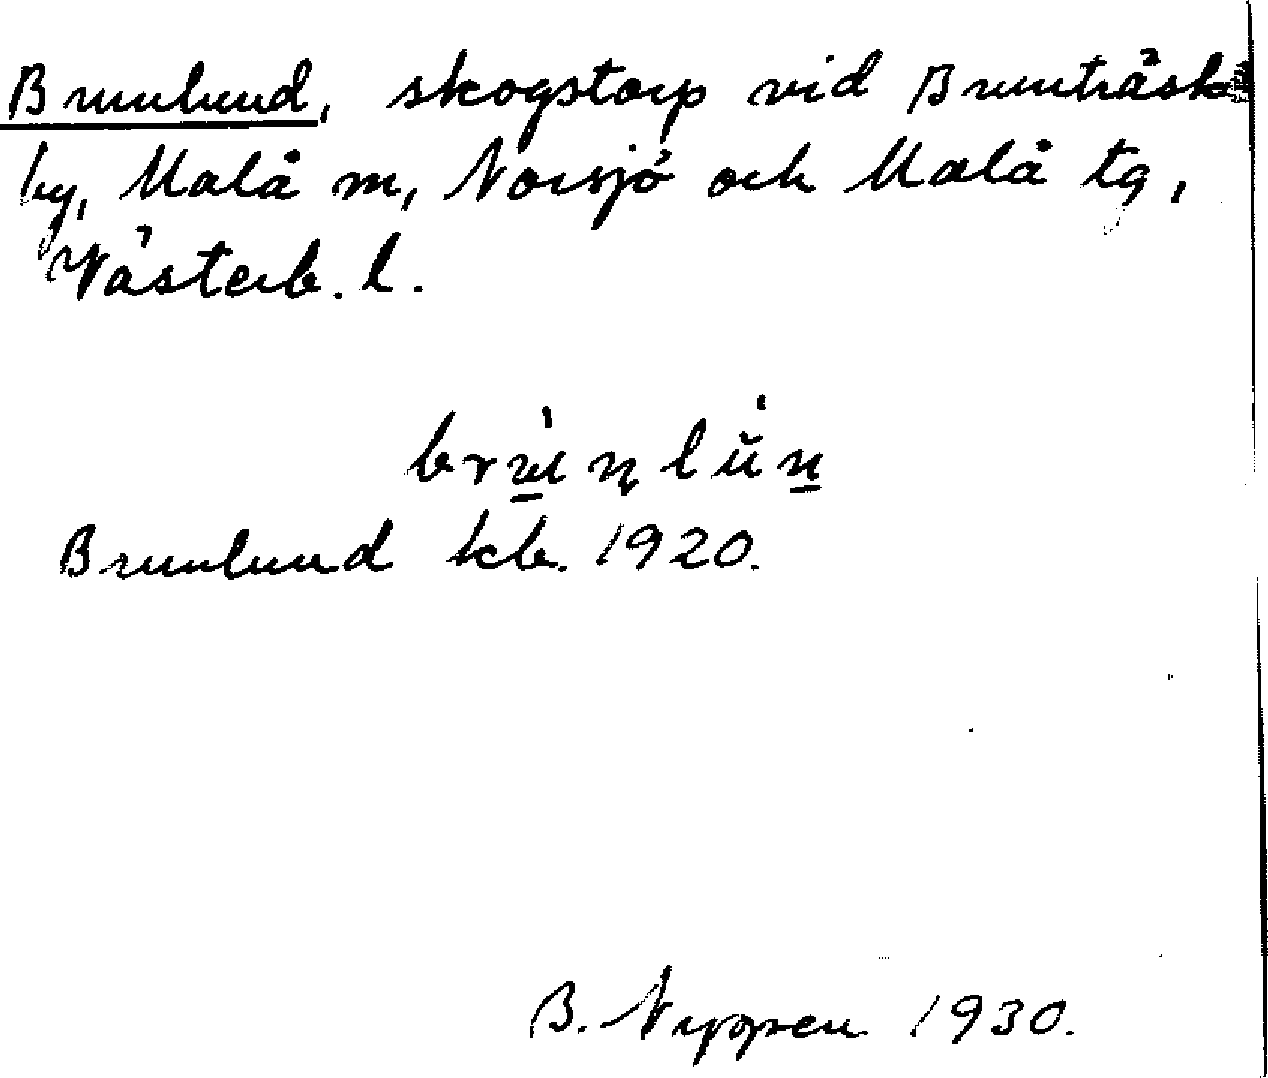 Brunlund, skogstorp vid Brunträsk
by, Malå m, Norsjö och Malå tg,
Västerb. l.
Brunlund kb. 1920.
B. Nygren 1930.